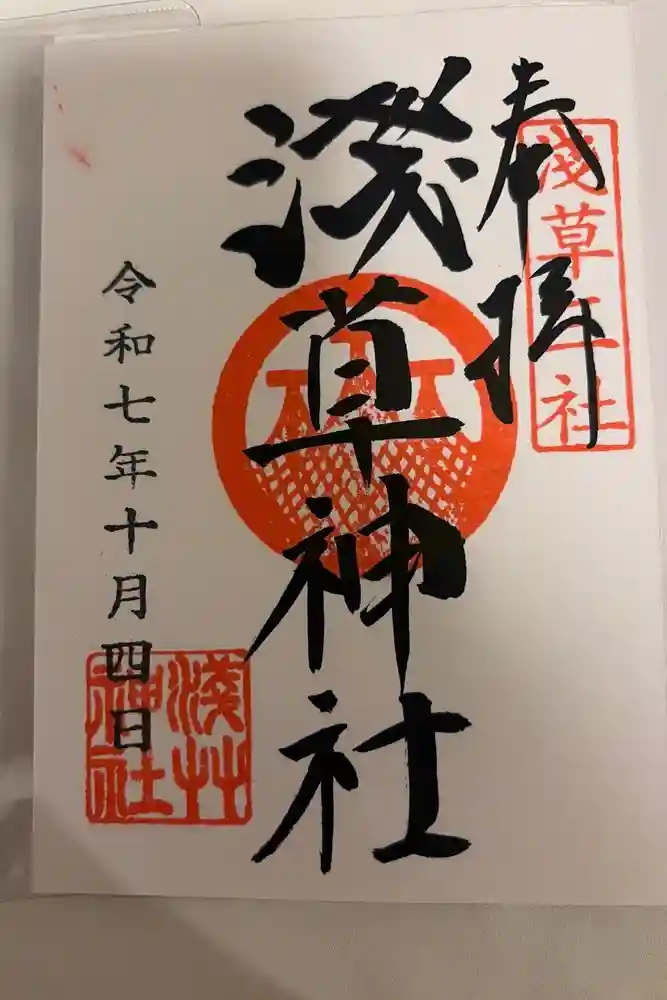 奉拝
淺草三社
淺草神社
令和七年十月四日
淺艸神社